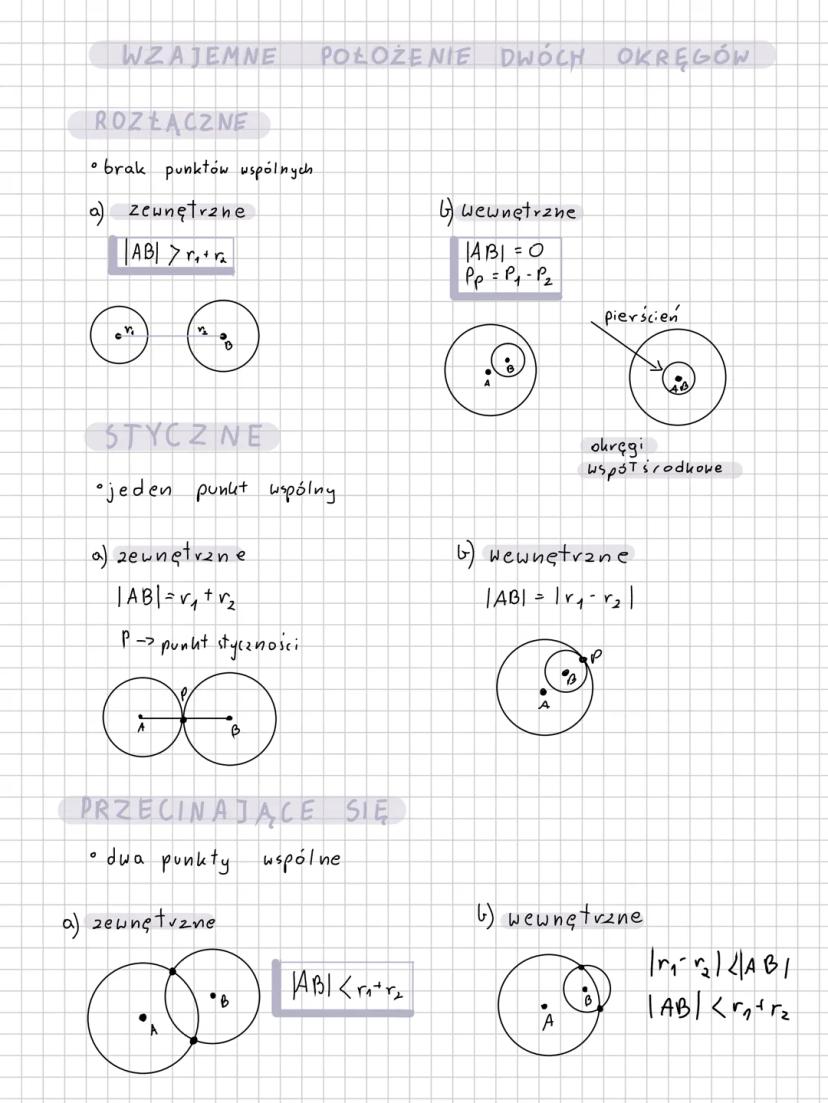 WZAJEMNE POŁOŻENIE DWÓCH OKRĘGÓW
ROZŁĄCZNE
• brak punktów wspólnych
a) zewnętrzne
|AB| > r₁+r₂
r₁ r₂ B
b) wewnętrzne
|AB| = 0
Pp = P₁ - P₂
pierścień
A B
AB
okręgi
współśrodkowe
STYCZNE
• jeden punkt wspólny
a) zewnętrzne
|AB| = r₁ + r₂
P -> punkt styczności
P
A B
b) wewnętrzne
|AB| = |r₁ - r₂|
P
B
A
PRZECINAJĄCE SIĘ
• dwa punkty wspólne
a) zewnętrzne
|AB| < r₁+r₂
B
A
b) wewnętrzne
|r₁ - r₂| < |AB|
|AB| < r₁+r₂
B
A